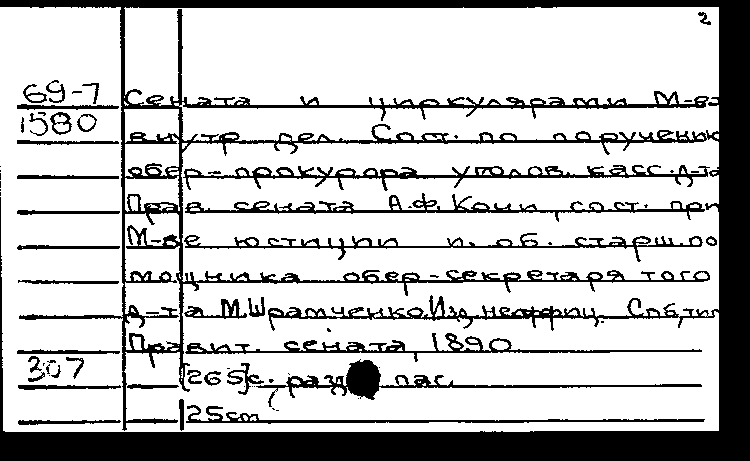 2
69-7 Сената и циркулярами М-ва
1580 внутр дел. Сост. по поручению
обер-прокурора уголов. касс. д-та
Прав. сената А.Ф. Кони, сост. при
М-ве юстиции и. об. старш. по
мощника обер-секретаря того
д-та М. Шрамченко. Изд. неоффиц. Спб, тип
Правит. сената, 1890
307 [265]с., разд. паг.
25 cm